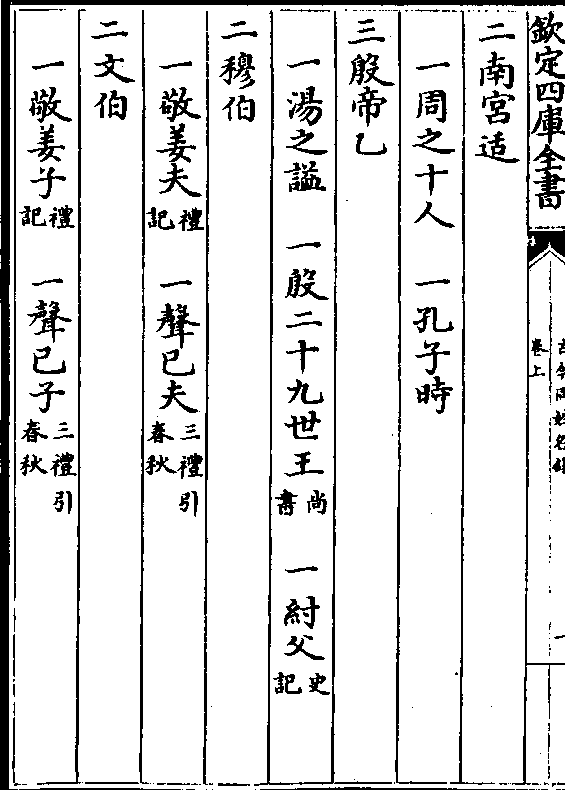 欽定四庫全書
古今同姓名錄
卷上
一
二南宮适
一周之十人　一孔子時
三殷帝乙
一湯之謚　一殷二十九世王尚書　一紂父史記
二穆伯
一敬姜夫禮記　一聲已夫三禮引春秋
二文伯
一敬姜子禮記　一聲已子三禮引春秋